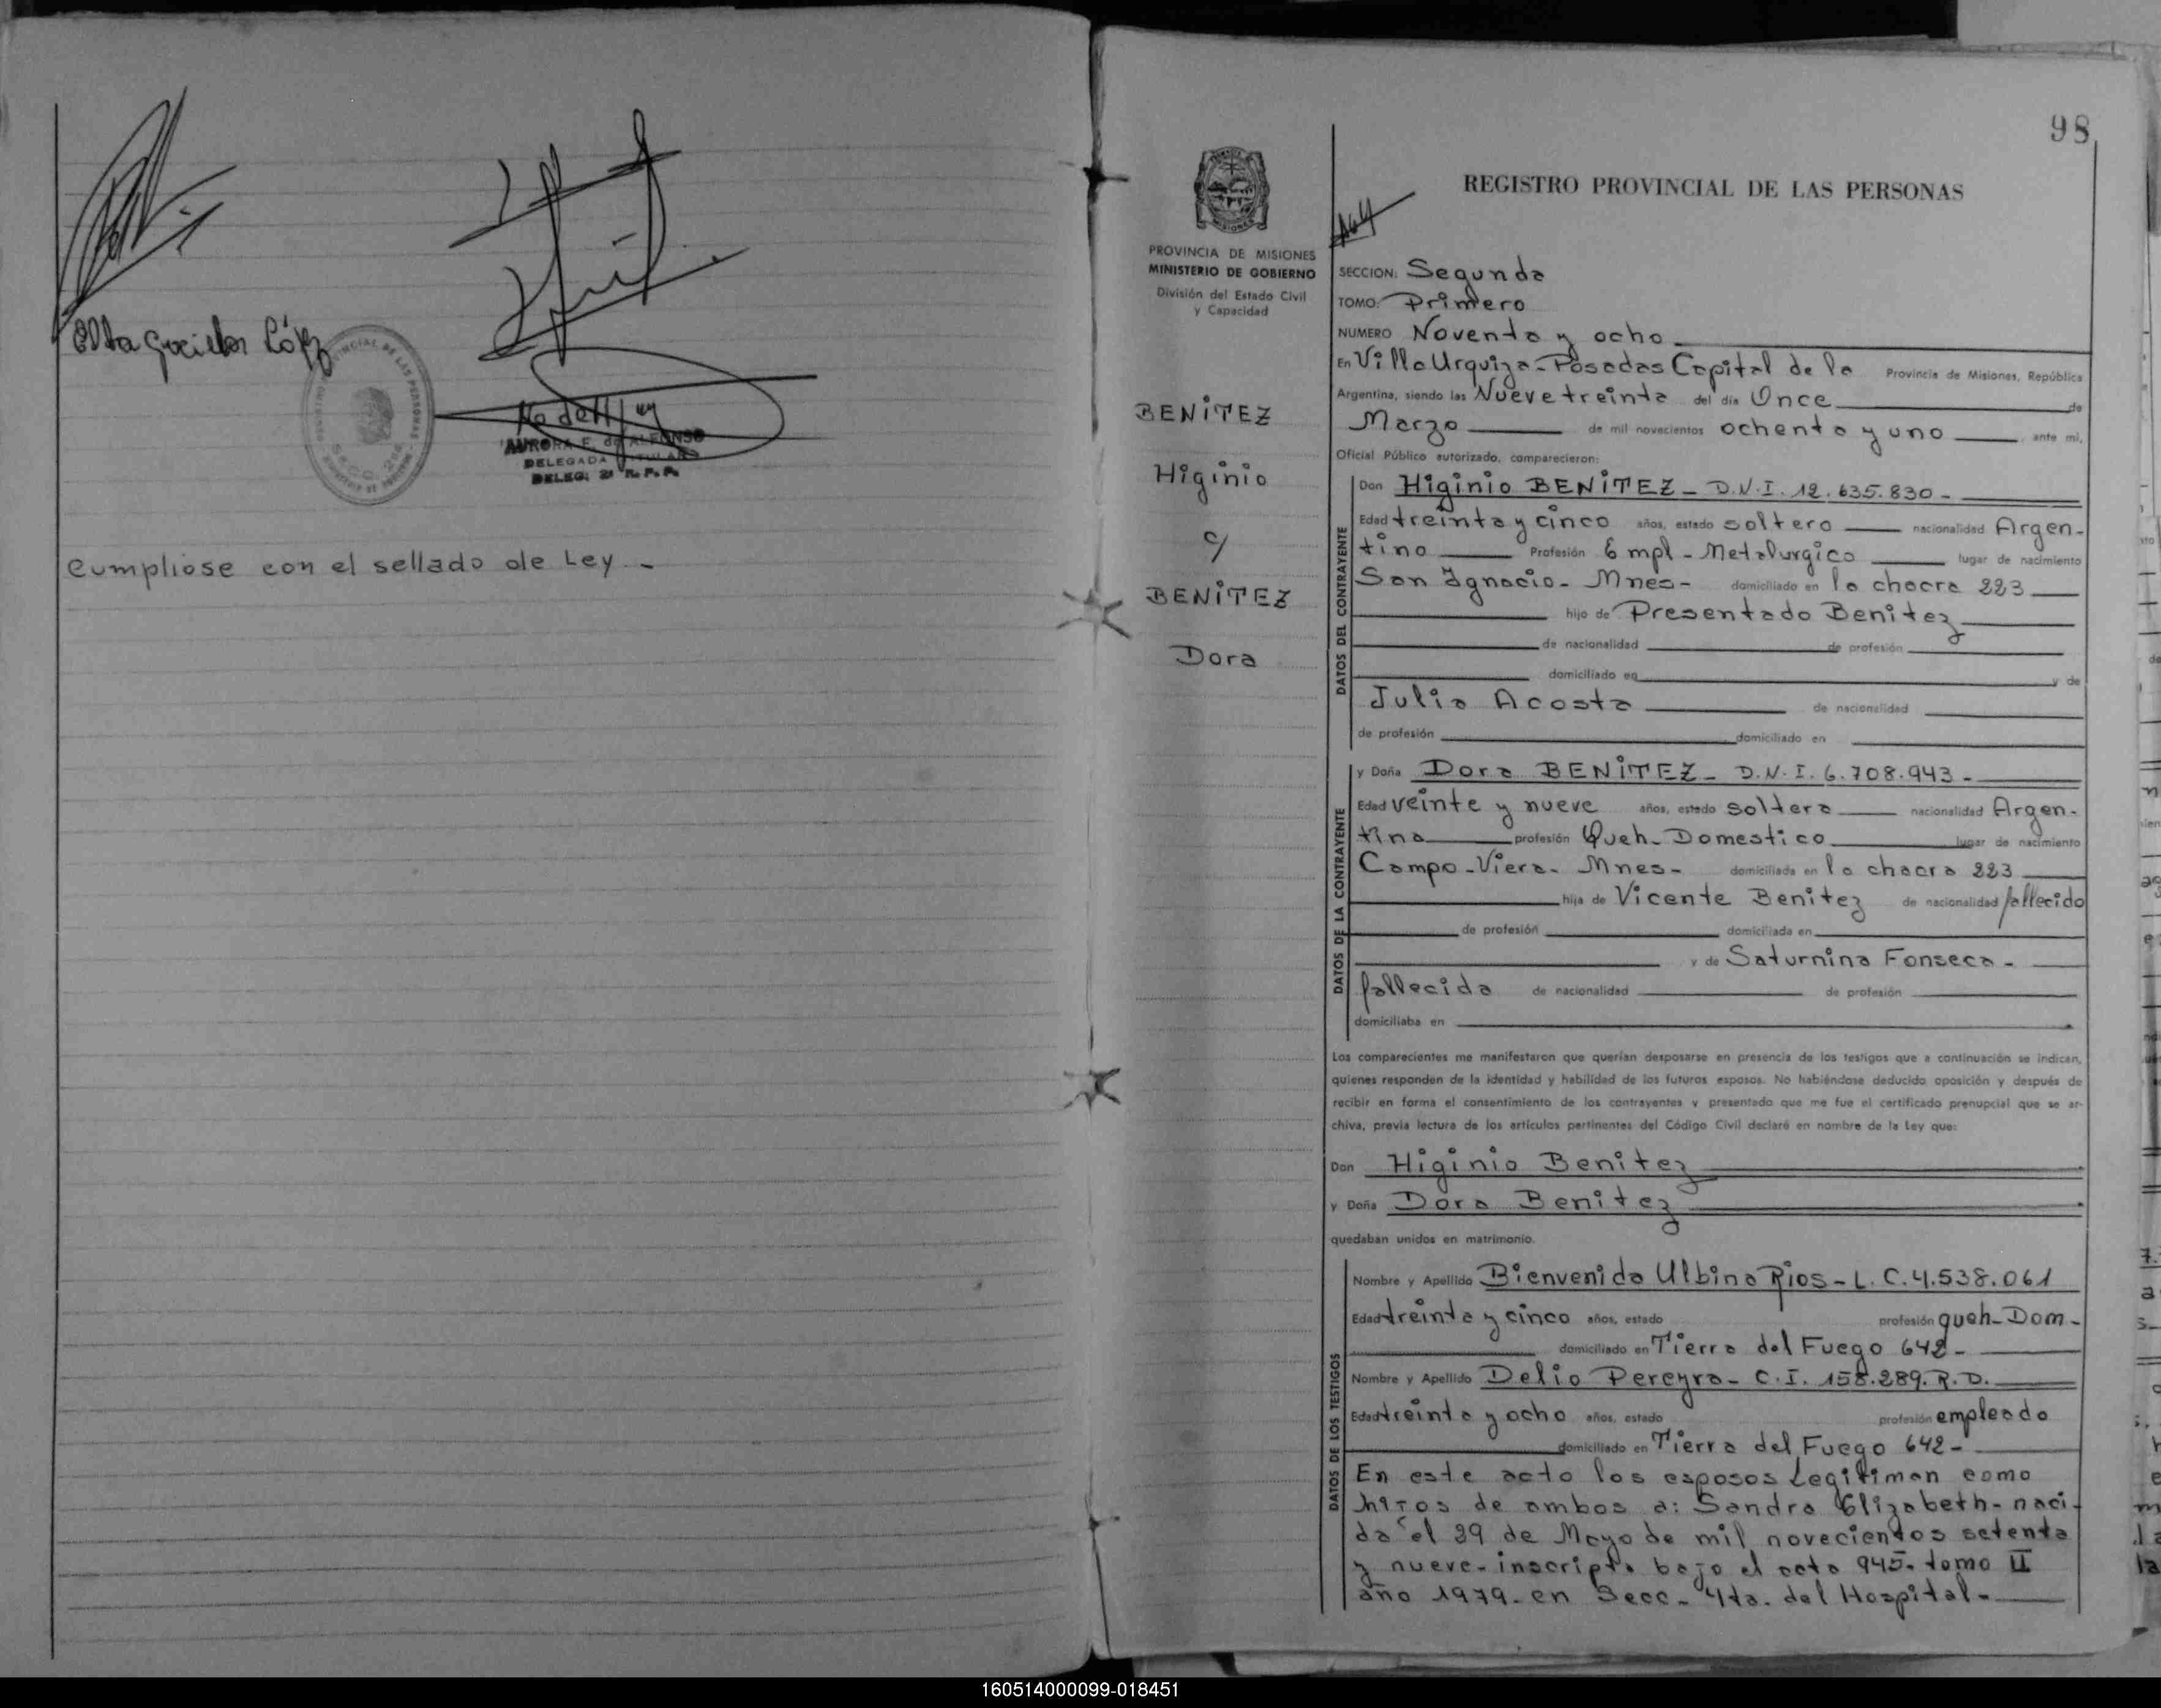 Elba Graciela López
AURORA E. de ALFONSO
DELEGADA TITULAR
DELEG. 2ª R. P. P.
Cumpliose con el sellado de Ley.-
98
REGISTRO PROVINCIAL DE LAS PERSONAS
PROVINCIA DE MISIONES
MINISTERIO DE GOBIERNO
División del Estado Civil
y Capacidad
BENITEZ
Higinio
c/
BENITEZ
Dora
SECCION: Segunda
TOMO: Primero
NUMERO Noventa y ocho
En Villa Urquiza-Posadas Capital de la Provincia de Misiones, República
Argentina, siendo las Nueve treinta del día Once de
Marzo de mil novecientos ochenta y uno ante mí,
Oficial Público autorizado, comparecieron:
DATOS DEL CONTRAYENTE
Don Higinio BENITEZ - D.N.I. 12.635.830-
Edad treinta y cinco años, estado soltero nacionalidad Argen-
tino Profesión Empl - Metalurgico lugar de nacimiento
San Ignacio- Mnes- domiciliado en la chacra 223
hijo de Presentado Benitez
de nacionalidad de profesión
domiciliado en y de
Julia Acosta de nacionalidad
de profesión domiciliado en
DATOS DE LA CONTRAYENTE
y Doña Dora BENITEZ- D.N.I. 6.708.943-
Edad veinte y nueve años, estado soltera nacionalidad Argen-
tina profesión Queh-Domestico lugar de nacimiento
Campo-Viera- Mnes- domiciliada en la chacra 223
hija de Vicente Benitez de nacionalidad fallecido
de profesión domiciliada en
y de Saturnina Fonseca-
fallecida de nacionalidad de profesión
domiciliaba en
Los comparecientes me manifestaron que querían desposarse en presencia de los testigos que a continuación se indican,
quienes responden de la identidad y habilidad de los futuros esposos. No habiéndose deducido oposición y después de
recibir en forma el consentimiento de los contrayentes y presentado que me fue el certificado prenupcial que se ar-
chiva, previa lectura de los artículos pertinentes del Código Civil declaré en nombre de la Ley que:
Don Higinio Benitez
y Doña Dora Benitez
quedaban unidos en matrimonio.
DATOS DE LOS TESTIGOS
Nombre y Apellido Bienvenida Ulbina Rios- L.C. 4.538.061
Edad treinta y cinco años, estado profesión queh-Dom-
domiciliado en Tierra del Fuego 642-
Nombre y Apellido Delio Pereyra- C.I. 158.289. R.D.
Edad treinta y ocho años, estado profesión empleado
domiciliado en Tierra del Fuego 642-
En este acto los esposos Legitiman como
hijos de ambos a: Sandra Elizabeth- naci-
da el 29 de Mayo de mil novecientos setenta
y nueve- inscripta bajo el acta 945- tomo II
año 1979- en Secc- 4ta. del Hospital-
160514000099-018451